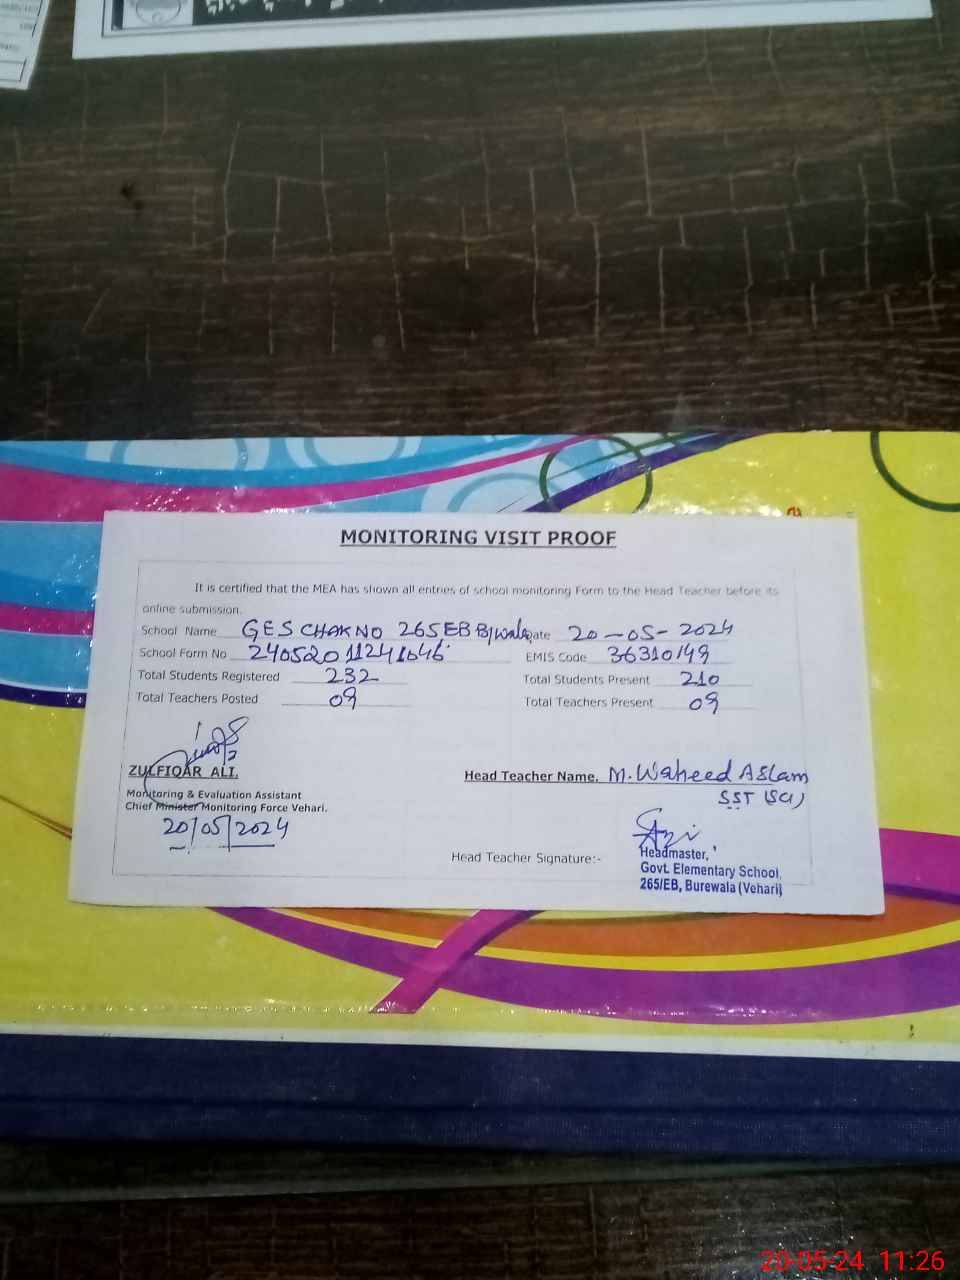 MONITORING VISIT PROOF
It is certified that the MEA has shown all entries of school monitoring Form to the Head Teacher before its
online submission.
School Name GES CHAK NO 265 EB B/wala Date 20-05-2024
School Form No 24052011241646 EMIS Code 36310149
Total Students Registered 232 Total Students Present 210
Total Teachers Posted 09 Total Teachers Present 09
ZULFIQAR ALI.
Head Teacher Name. M. Waheed Aslam
Monitoring & Evaluation Assistant
SST (SC)
Chief Minister Monitoring Force Vehari.
20/05/2024
Head Teacher Signature:-
Headmaster,
Govt. Elementary School,
265/EB, Burewala (Vehari)
20-05-24 11:26